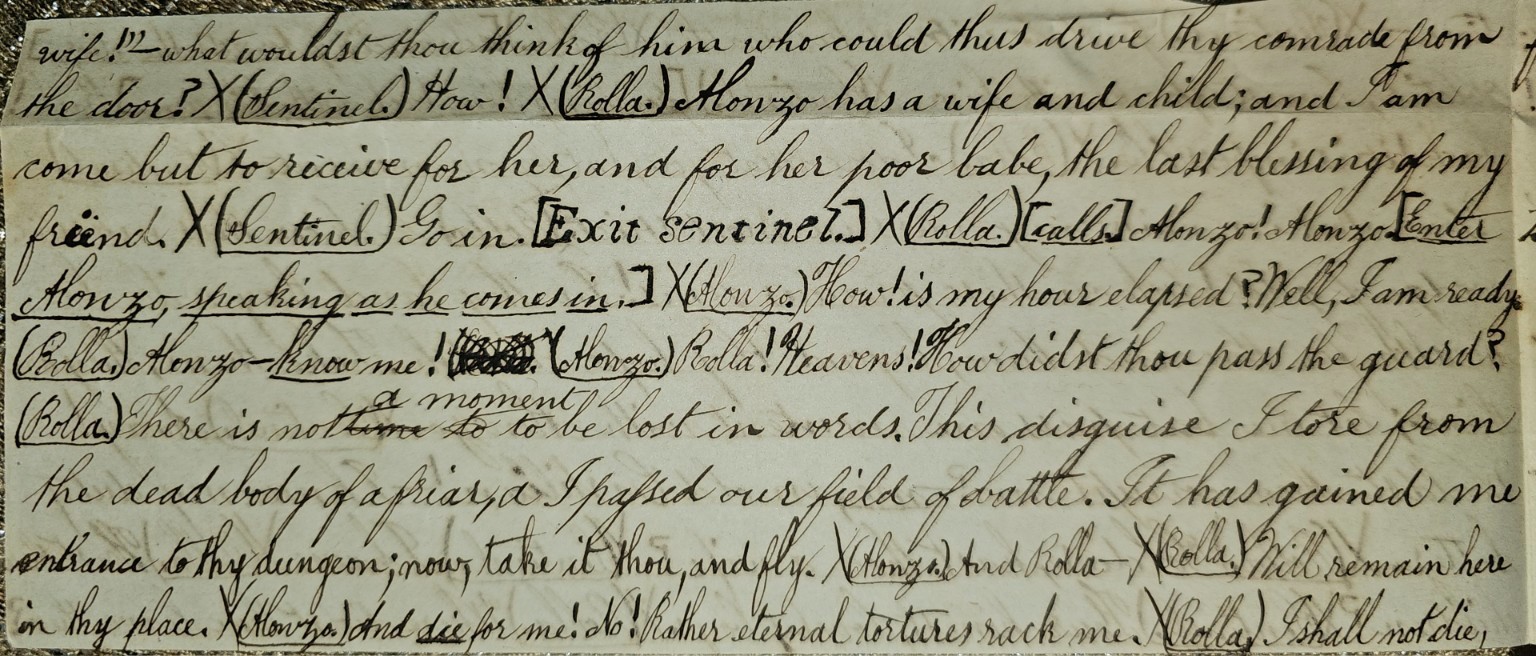 wife!"—what wouldst thou think of him who could thus drive thy comrade from
the door? X (Sentinel.) How! X (Rolla.) Alonzo has a wife and child; and I am
come but to receive for her, and for her poor babe, the last blessing of my
friend. X (Sentinel.) Go in. [Exit sentinel.] X (Rolla.) [calls.] Alonzo! Alonzo. [Enter
Alonzo, speaking as he comes in.] X (Alonzo.) How! is my hour elapsed? Well, I am ready.
(Rolla.) Alonzo—know me! (Alonzo.) Rolla! Heavens! How didst thou pass the guard?
a moment
(Rolla.) There is not time to to be lost in words. This disguise I tore from
the dead body of a friar, a I passed our field of battle. It has gained me
entrance to thy dungeon; now, take it thou, and fly. X (Alonzo.) And Rolla— X (Rolla.) Will remain here
in thy place. X (Alonzo.) And die for me! No! Rather eternal tortures rack me. X (Rolla.) I shall not die,